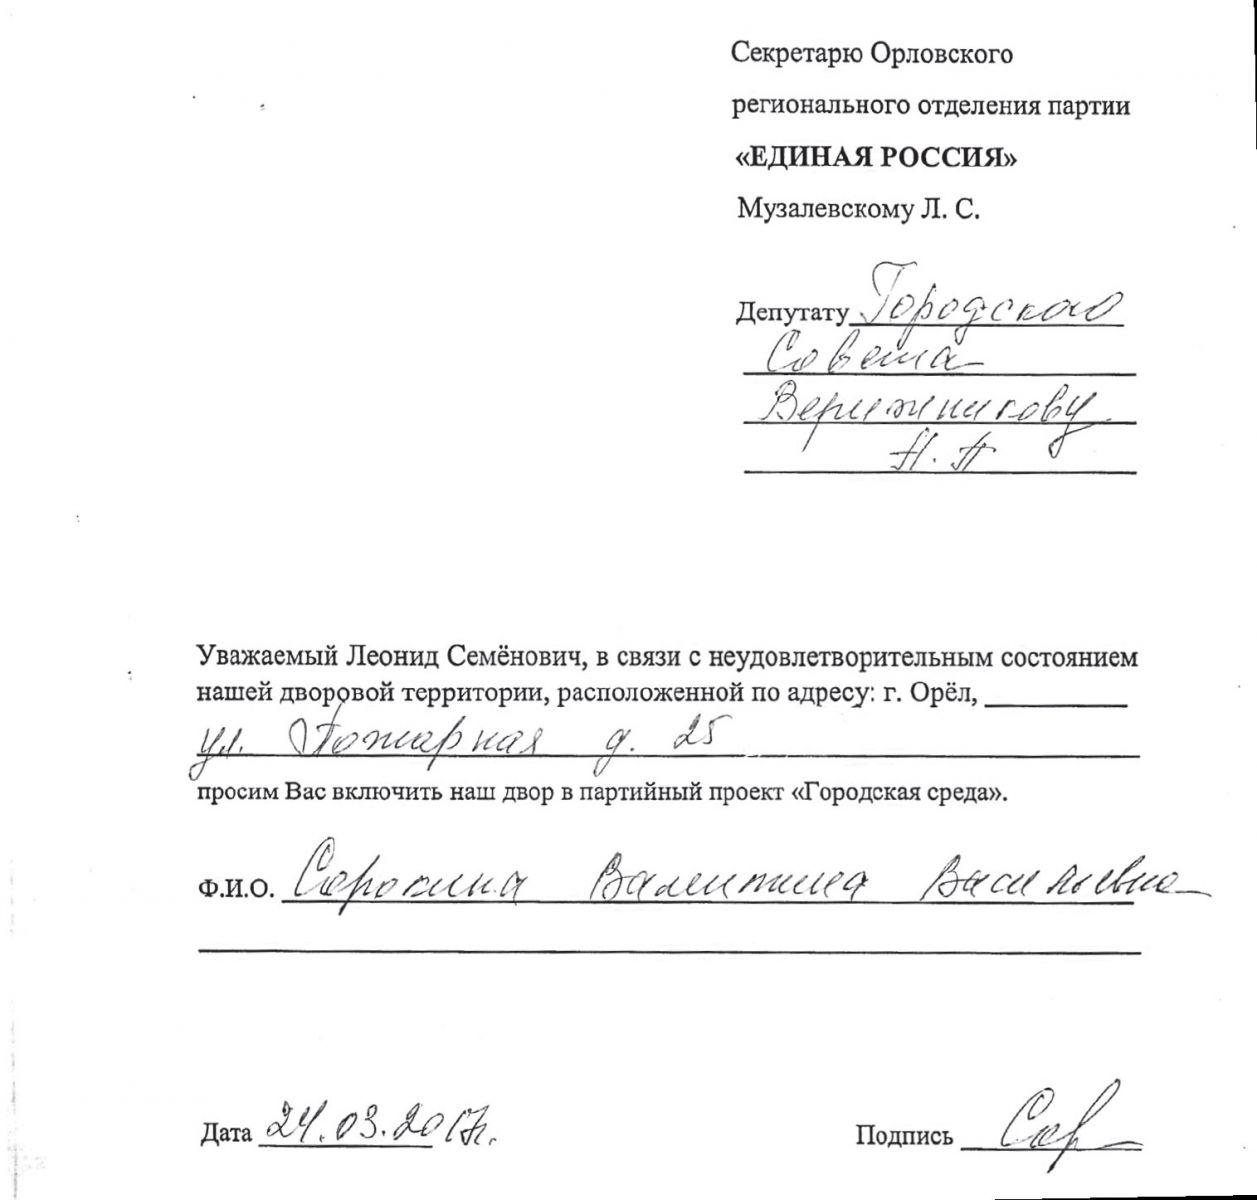 Секретарю Орловского
регионального отделения партии
«ЕДИНАЯ РОССИЯ»
Музалевскому Л. С.
Депутату Городского
Совета
Верижникову
Н. П
Уважаемый Леонид Семёнович, в связи с неудовлетворительным состоянием
нашей дворовой территории, расположенной по адресу: г. Орёл,
ул. Пожарная д. 25
просим Вас включить наш двор в партийный проект «Городская среда».
Ф.И.О. Сорокина Валентина Васильевна
Дата 24.03.2017г.
Подпись Сор